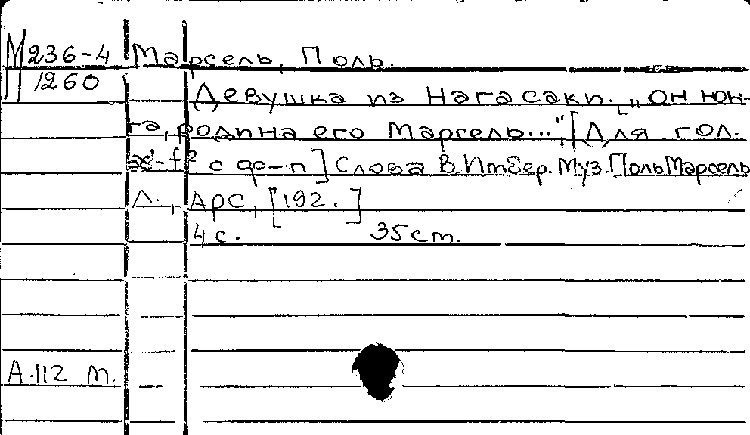 М 236-4 Марсель, Поль.
1260
Девушка из Нагасаки. „Он юн-
га, родина его Марсель...", [Для гол.
с ф-п] Слова В. Инбер. Муз. Поль Марсель
Л., АРС, [192. ]
4 с. 35 cm.
А-112 м.